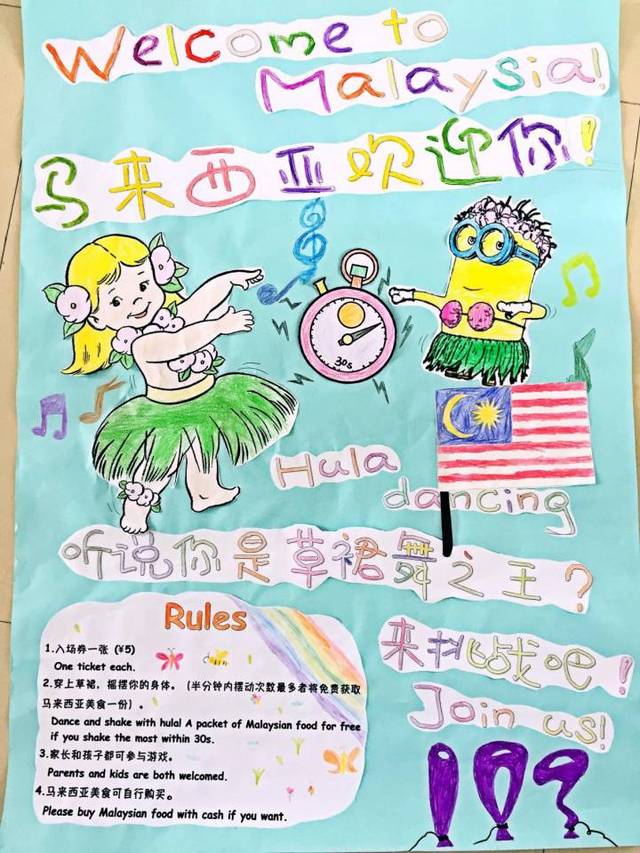 Welcome to
Malaysia!
马来西亚欢迎你!
30s
Hula
dancing
听说你是草裙舞之王?
Rules
1.入场券一张 (¥5)
One ticket each.
2.穿上草裙，摇摆你的身体。（半分钟内摆动次数最多者将免费获取
马来西亚美食一份）。
Dance and shake with hula! A packet of Malaysian food for free
if you shake the most within 30s.
3.家长和孩子都可参与游戏。
Parents and kids are both welcomed.
4.马来西亚美食可自行购买。
Please buy Malaysian food with cash if you want.
来挑战吧!
Join us!